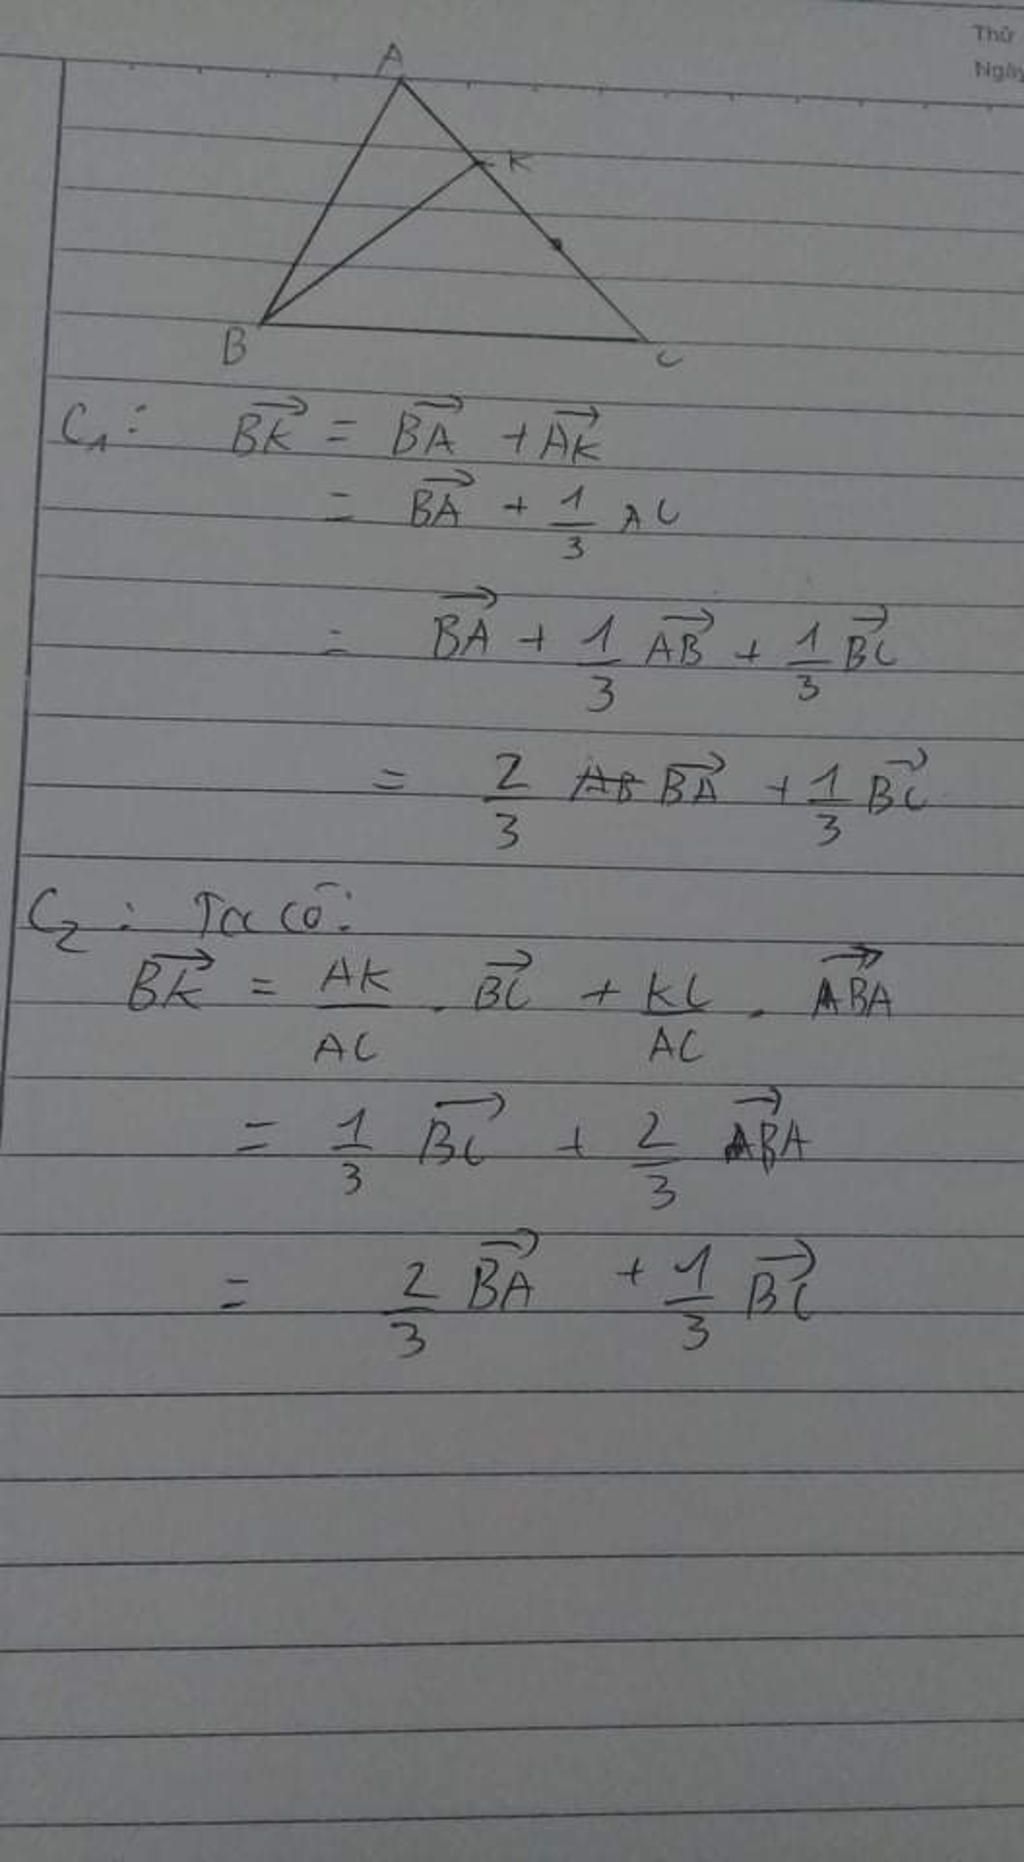 Thứ
Ngày
A
K
B
C
C₁: $\overrightarrow{BK} = \overrightarrow{BA} + \overrightarrow{AK}$
$= \overrightarrow{BA} + \frac{1}{3} AC$
$= \overrightarrow{BA} + \frac{1}{3} \overrightarrow{AB} + \frac{1}{3} \overrightarrow{BC}$
$= \frac{2}{3} \overrightarrow{BA} + \frac{1}{3} \overrightarrow{BC}$
C₂: Ta có:
$\overrightarrow{BK} = \frac{AK}{AC} . \overrightarrow{BC} + \frac{KC}{AC} . \overrightarrow{BA}$
$= \frac{1}{3} \overrightarrow{BC} + \frac{2}{3} \overrightarrow{BA}$
$= \frac{2}{3} \overrightarrow{BA} + \frac{1}{3} \overrightarrow{BC}$